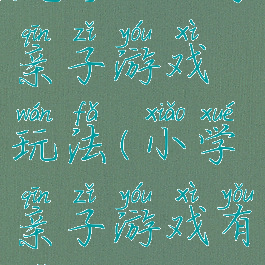 qīn zǐ yóu xì
亲子游戏
wán fǎ xiǎo xué
玩法(小学
qīn zǐ yóu xì yǒu
亲子游戏有